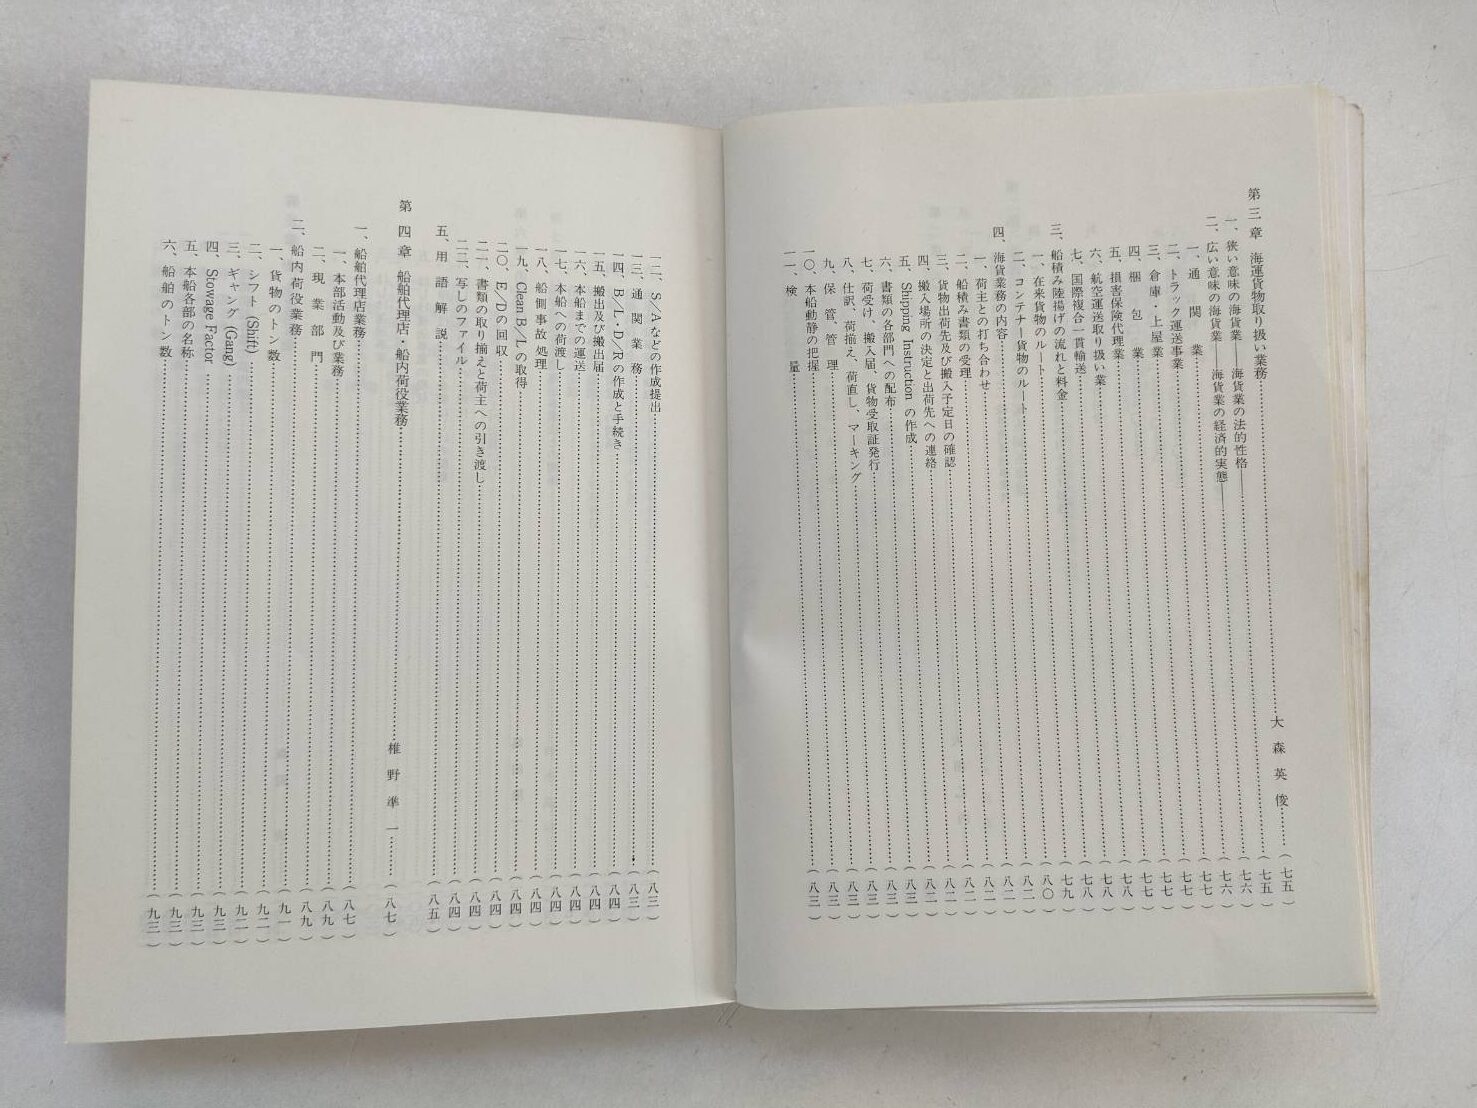 第三章 海運貨物取り扱い業務……大森英俊……(七五)
一、狭い意味の海貨業――海貨業の法的性格――……(七五)
二、広い意味の海貨業――海貨業の経済的実態――……(七六)
一、通関業……(七六)
二、トラック運送事業……(七七)
三、倉庫・上屋業……(七七)
四、梱包業……(七七)
五、損害保険代理業……(七八)
六、航空運送取り扱い業……(七八)
七、国際複合一貫輸送……(七八)
三、船積み陸揚げの流れと料金……(七九)
一、在来貨物のルート……(八〇)
二、コンテナー貨物のルート……(八二)
四、海貨業務の内容……(八二)
一、荷主との打ち合わせ……(八二)
二、船積み書類の受理……(八二)
三、貨物出荷先及び搬入予定日の確認……(八二)
四、搬入場所の決定と出荷先への連絡……(八二)
五、Shipping Instruction の作成……(八三)
六、書類の各部門への配布……(八三)
七、荷受け、搬入届、貨物受取証発行……(八三)
八、仕訳、荷揃え、荷直し、マーキング……(八三)
九、保管、管理……(八三)
一〇、本船動静の把握……(八三)
一一、検量……(八三)
一二、S/Aなどの作成提出……(八三)
一三、通関業務……(八三)
一四、B/L・D/Rの作成と手続き……(八四)
一五、搬出及び搬出届……(八四)
一六、本船までの運送……(八四)
一七、本船への荷渡し……(八四)
一八、船側事故処理……(八四)
一九、Clean B/Lの取得……(八四)
二〇、E/Dの回収……(八四)
二一、書類の取り揃えと荷主への引き渡し……(八四)
二二、写しのファイル……(八四)
五、用語解説……(八五)
第四章 船舶代理店・船内荷役業務……椎野準一……(八七)
一、船舶代理店業務……(八七)
一、本部活動及び業務……(八九)
二、現業部門……(八九)
二、船内荷役業務……(九一)
一、貨物のトン数……(九一)
二、シフト (Shift)……(九二)
三、ギャング (Gang)……(九二)
四、Stowage Factor……(九三)
五、本船各部の名称……(九三)
六、船舶のトン数……(九三)